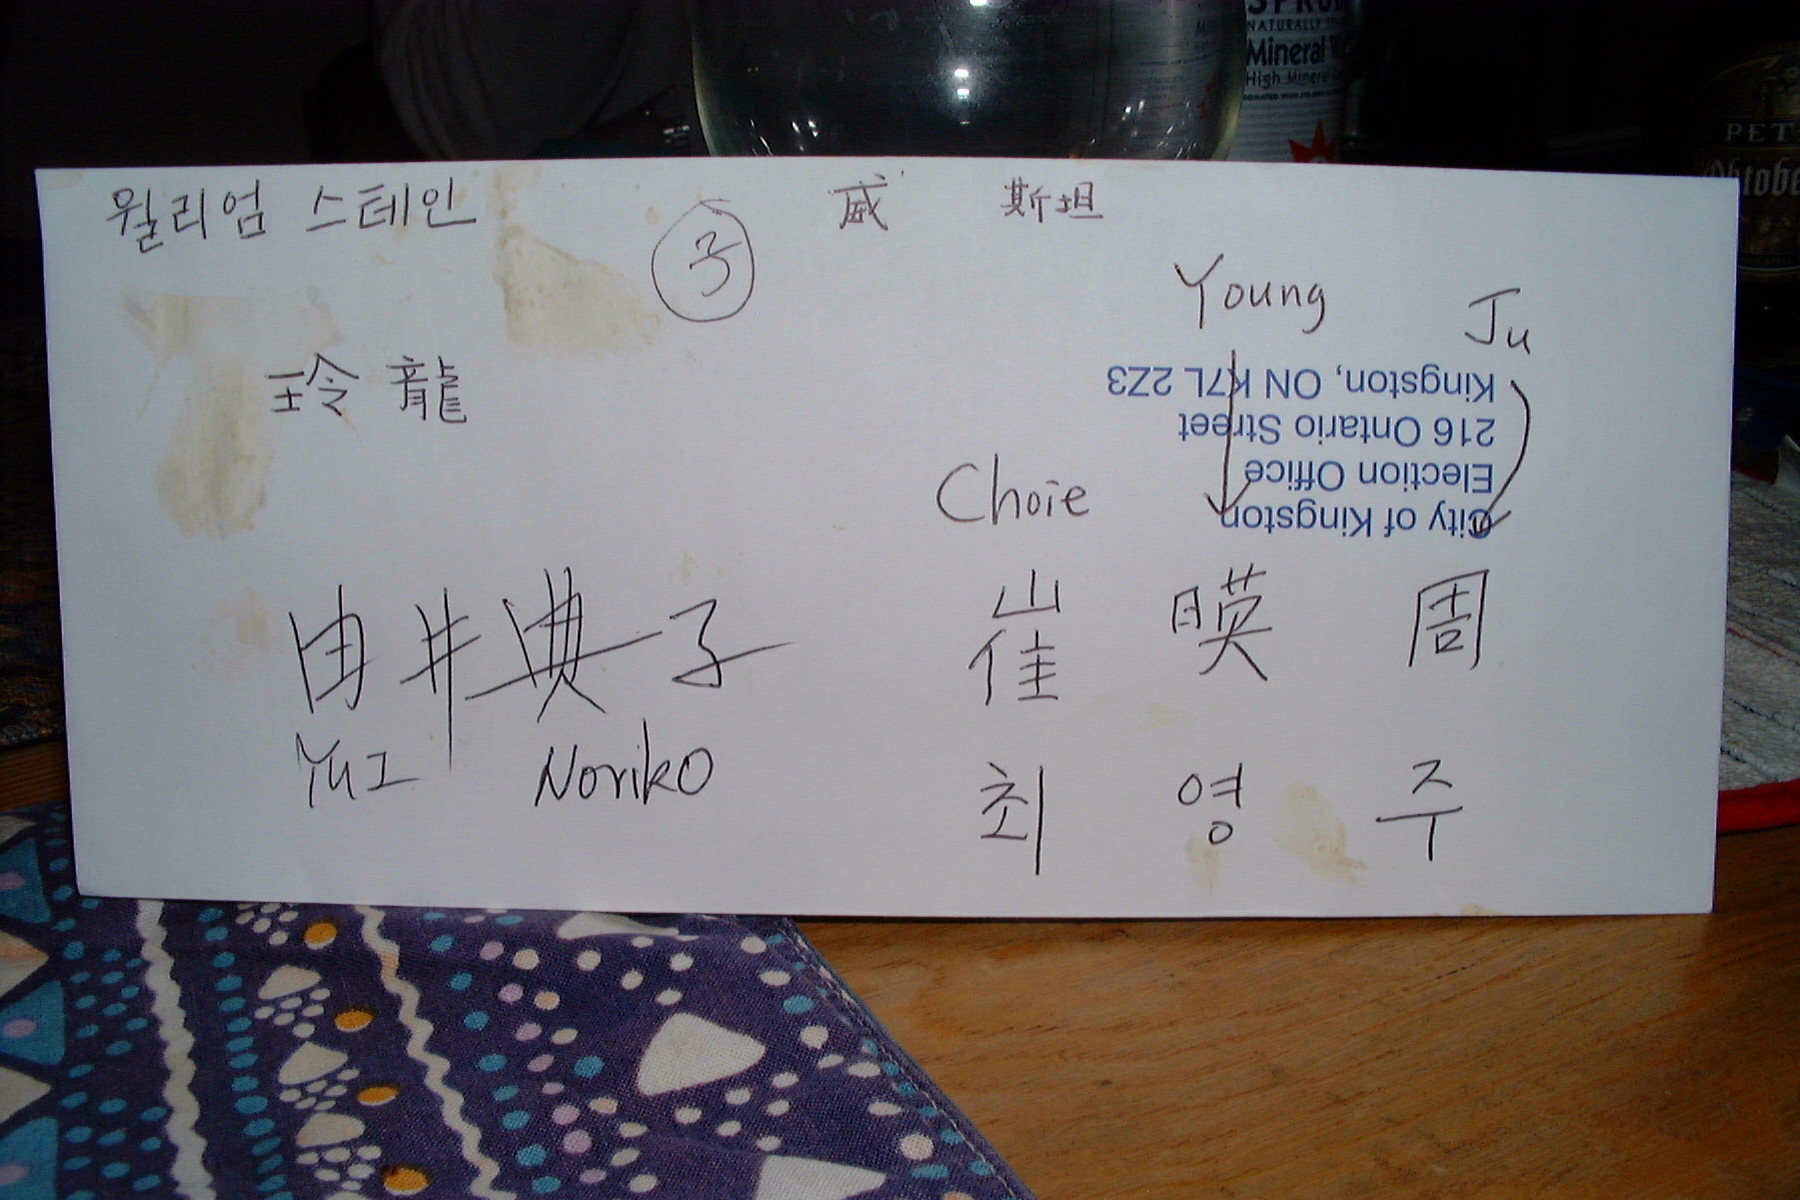 윌리엄 스테인
威 斯坦
Young Ju
玲龍
Choie
由井典子
崔 暎 周
YuI Noriko
최 영 주
Kingston, ON K7L 2Z3
216 Ontario Street
Election Office
City of Kingston
Mineral
High Mineral
PET